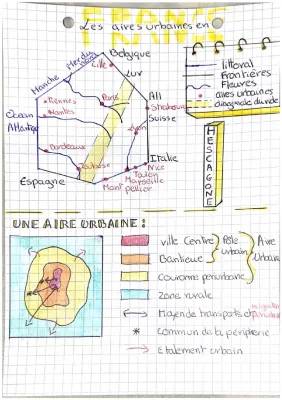 FRANCE
Les aires urbaines en
Belgique
Mer du Nord
Lille
Lux
Manche
littoral
Frontières
Fleuves
aires urbaines
diagonale du vide
Paris
All
Rennes
Strasbourg
Nantes
Suisse
Océan
Atlantique
Lyon
Bordeaux
Italie
Toulouse
Nice
Toulon
Marseille
Montpellier
Espagne
HESCAGONE
UNE AIRE URBAINE:
ville Centre
Pôle urbain
Aire Urbaine
Banlieue
Couronne périurbaine
Zone rurale
Moyen de transports et
commun de la périphérie
étalement urbain